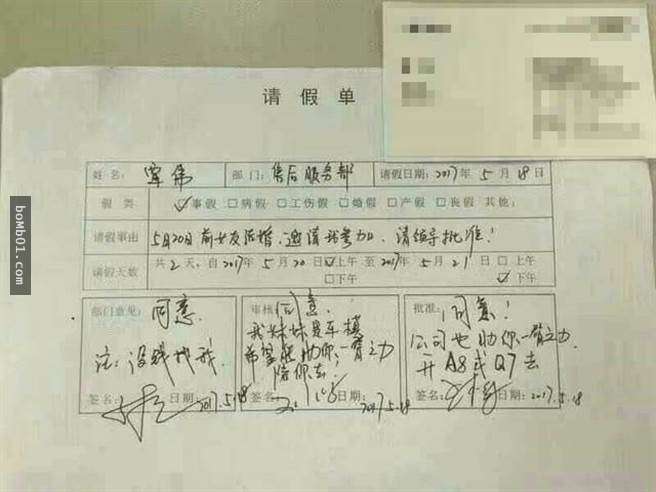 请假单
姓名: 覃伟 部门: 售后服务部 请假日期: 2017年5月18日
假类 ☑事假 □病假 □工伤假 □婚假 □产假 □丧假 其他:
请假事由 5月20日前女友结婚,邀请我参加,请领导批准!
请假天数 共2天,自2017年5月20日☑上午□下午至2017年5月21日□上午☑下午
部门意见: 同意.
注:没钱找我.
签名: 日期: 2017.5.18
审核: 同意.
我妹妹是车模
希望能助你一臂之力
陪你去!
签名: 日期: 2017.5.18
批准: 同意!
公司也助你一臂之力.
开A8或Q7去
签名: 日期: 2017.5.18
bomb01.com